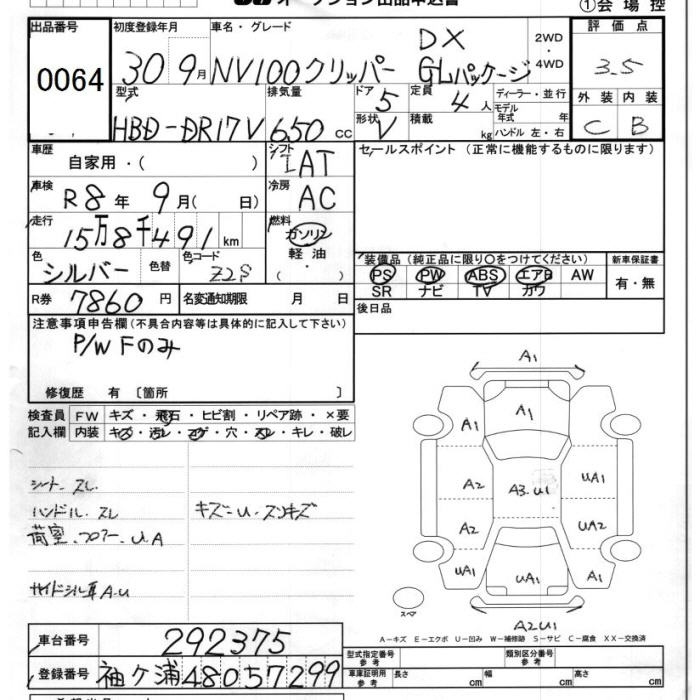 オークション出品申込書
①会場控
出品番号 初度登録年月 車名・グレード 評価点
0064 30 9月 NV100クリッパー DX GLパッケージ 2WD・4WD 3.5
型式 排気量 ドア 5 定員 4人 ディーラー・並行 外装 内装
HBD-DR17V 650cc 形状 V 積載 kg モデル年式 年 ハンドル 左・右 C B
車歴 自家用・( ) シフト IAT セールスポイント (正常に機能するものに限ります)
車検 R8年 9月( 日) 冷房 AC
走行 15万8千491km 燃料 ガソリン
軽油
色 シルバー 色替 色コード Z2S 装備品(純正品に限り○をつけてください) 新車保証書
PS PW ABS エアB AW 有・無
SR ナビ TV カワ
R券 7860円 名変通知期限 月 日 後日品
注意事項申告欄(不具合内容等は具体的に記入して下さい)
P/W Fのみ
修復歴 有 〔箇所 〕
検査員 FW キズ・飛石・ヒビ割・リペア跡・×要
記入欄 内装 キズ・汚レ・コゲ・穴・スレ・キレ・破レ
シート.スレ
ハンドル.スレ キズ-U-スリキズ
荷室.フロアー.U.A
サイドシル耳A-U
A1
A1
A2 A3.U1 UA1
A2 UA2
UA1 UA1 A1
スペア
A2U1
A-キズ E-エクボ U-凹み W-補修跡 S-サビ C-腐食 XX-交換済
車台番号 292375 型式指定番号 参考 類別区分番号 参考
登録番号 袖ケ浦48057299 車庫証明用 参考 長さ cm 幅 cm 高さ cm